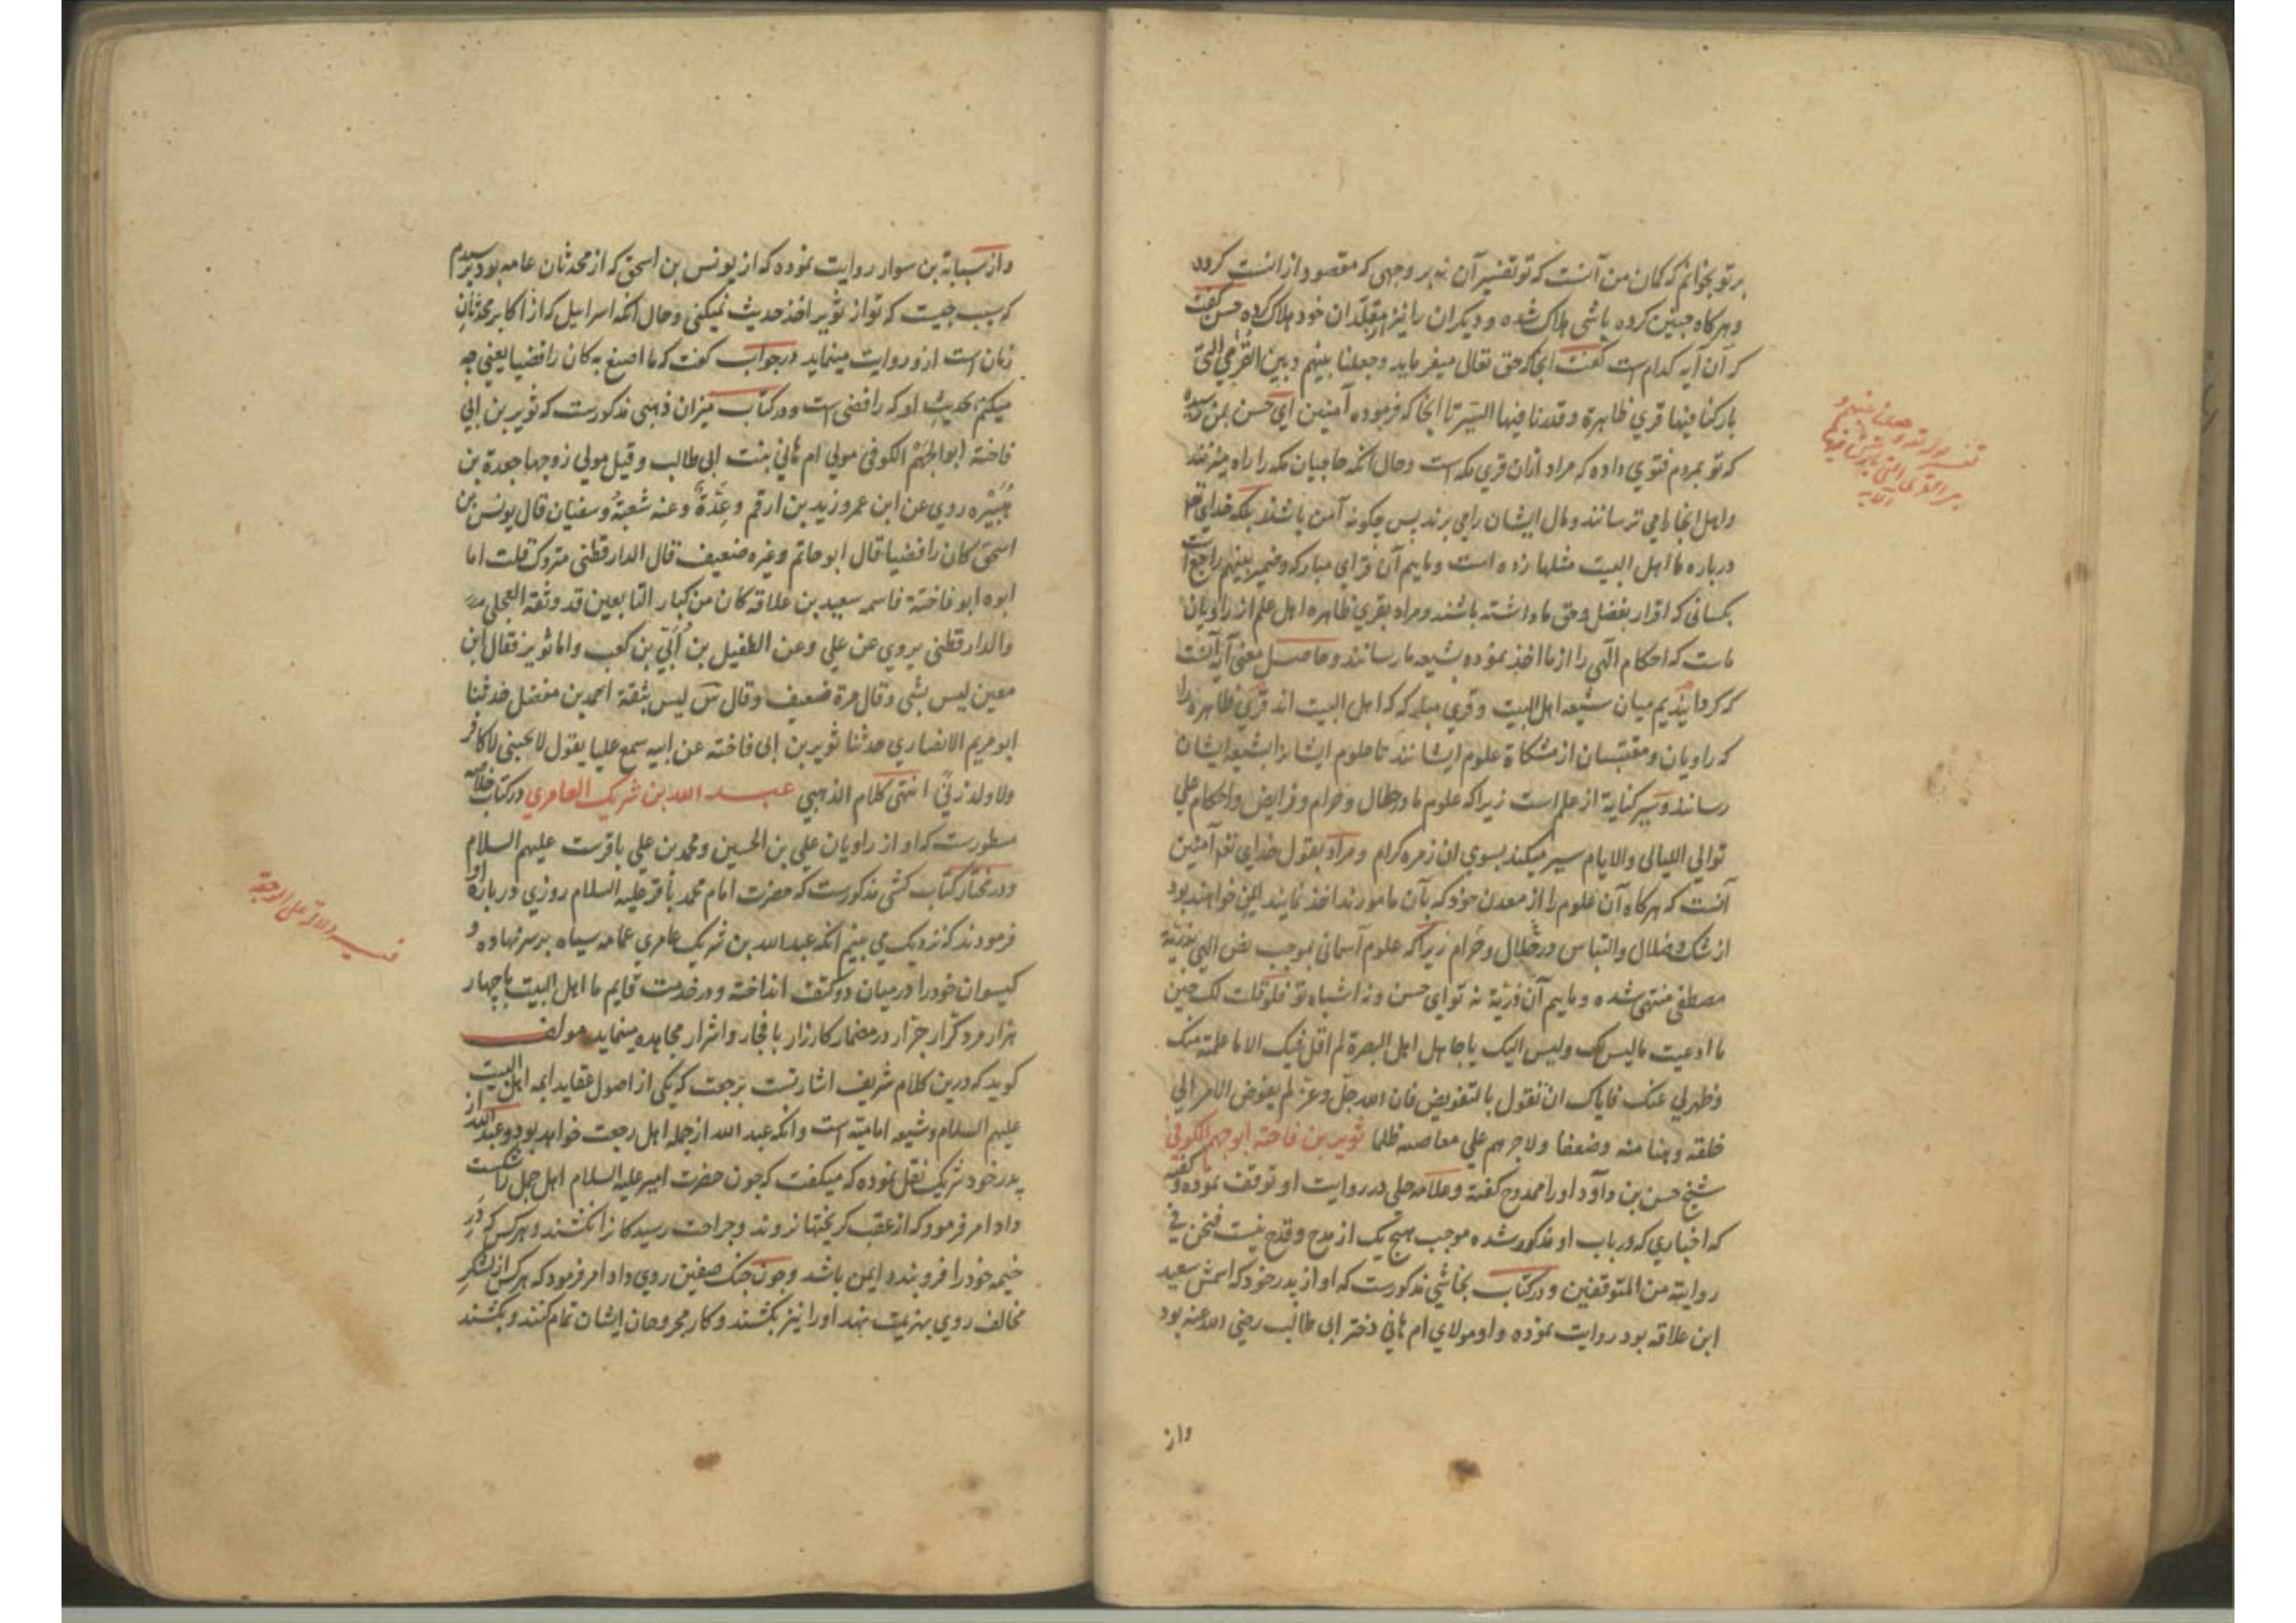 بر تو بخوانم که کمان من آنست که تو تفسیر آن نه بر وجهی که مقصود از انست کرده
و هر کاه چنین کرده باشی هلاک شده و دیکران را نیز از مقلدان خود هلاک کرده حسن کفت
که آن آیه کدام است کفت انجا که حق تعالی میفرماید وجعلنا بینهم وبین القری التی
بارکنا فیها قری ظاهرة وقدرنا فیها السیر تا انجا که فرموده آمنین ای حسن بمن رسیده
که تو بمردم فتوی داده که مراد ازان قری مکه است و حال آنکه حاجیان مکه را راه میزنند
و اهل انجا را می ترسانند و مال ایشان را می برند پس چکونه آمن باشند بلکه خدای تعالی
درباره ما اهل البیت مثلها زده است و ماییم آن قرای مبارکه و ضمیر بینهم راجع است
بکسانی که اقرار بفضل و حق ما داشته باشند و مراد بقری ظاهره اهل علم از راویان
ماست که احکام الهی را از ما اخذ نموده بشیعه ما رسانند و حاصل معنی آیه آنست
که کردانیدیم میان شیعه اهل البیت و قری مبارکه که اهل البیت اند قری ظاهره را
که راویان و مقتبسان از مشکاة علوم ایشانند تا علوم ایشانرا بشیعه ایشان
رسانند و سیر کنایة از علم است زیرا که علوم ما در حلال و حرام و فرایض و احکام علی
توالی اللیالی والایام سیر میکند بسوی ان زمره کرام و مراد بقول خدای تعالی آمنین
آنست که هرکاه آن علوم را از معدن خود که بآن مامورند اخذ نمایند ایمن خواهند بود
از شک و ضلال و التباس در حلال و حرام زیرا که علوم آسمانی بموجب نص الهی بذریة
مصطفی منتهی شده و ماییم آن ذریة نه تو ای حسن و نه اشباه تو فلو قلت لک حین
ما ادعیت ما لیس لک ولیس الیک یا جاهل اهل البصرة لم اقل فیک الا ما علمته منک
وظهر لی عنک فایاک ان تقول بالتفویض فان الله جل وعز لم یفوض الامر الی
خلقه وهنا منه وضعفا ولا جبرهم علی معاصیه ظلما ثویر بن فاخته ابوجهم الکوفی
شیخ حسن بن داود او را ممدوح کفته و علامه حلی در روایت او توقف نموده و کفته
که اخباری که در باب او مذکور شده موجب هیچ یک از مدح و قدح نیست فنحن فی
روایته من المتوقفین و در کتاب نجاشی مذکورست که او از پدر خود که اسمش سعید
ابن علاقه بود روایت نموده و او مولای ام هانی دختر ابی طالب رضی الله عنه بود
واز
تفسیر قوله تعالی وجعلنا بینهم و
بین القری التی بارکنا فیها
الایه
و از شبابة بن سوار روایت نموده که از یونس بن اسحق که از محدثان عامه بود پرسیدم
که سبب چیست که تو از ثویر اخذ حدیث نمیکنی و حال آنکه اسرایل که از اکابر محدثان
زمان است ازو روایت مینماید در جواب کفت که ما اصنع به کان رافضیا یعنی چه
میکنم بحدیث او که رافضی است و در کتاب میزان ذهبی مذکورست که ثویر بن ابی
فاخته ابو الجهم الکوفی مولی ام هانی بنت ابی طالب وقیل مولی زوجها جعدة بن
هبیره روی عن ابن عمر وزید بن ارقم وعدة وعنه شعبة وسفیان قال یونس بن
اسحق کان رافضیا قال ابو حاتم وغیره ضعیف قال الدارقطنی متروک قلت اما
ابوه ابو فاخته فاسمه سعید بن علاقه کان من کبار التابعین قد وثقه العجلی
والدارقطنی یروی عن علی وعن الطفیل بن أبی بن کعب واما ثویر فقال ابن
معین لیس بشی وقال مرة ضعیف وقال س لیس بثقة احمد بن مفضل حدثنا
ابو مریم الانصاری حدثنا ثویر بن ابی فاخته عن ابیه سمع علیا یقول لا یحبنی کافر
ولا ولد زنی انتهی کلام الذهبی عبد الله بن شریک العامری در کتاب خلاصه
مسطورست که او از راویان علی بن الحسین و محمد بن علی باقرست علیهم السلام
و در مختار کتاب کشی مذکورست که حضرت امام محمد باقر علیه السلام روزی درباره او
فرمودند که نزدیک می بینم انکه عبد الله بن شریک عامری عمامه سیاه بر سر نهاده و
کیسوان خود را در میان دو کتف انداخته و در خدمت قایم ما اهل البیت با چهار
هزار مرد کرار جرار در مضمار کارزار با فجار و اشرار مجاهده مینماید مولف
کوید که درین کلام شریف اشارتست برجعت که یکی از اصول عقاید ایمه اهل البیت
علیهم السلام و شیعه امامیه است و انکه عبد الله از جمله اهل رجعت خواهد بود و عبد الله از
پدر خود شریک نقل نموده که میکفت که چون حضرت امیر علیه السلام اهل جمل را شکست
داد امر فرمود که از عقب کریختها نروند و جراحت رسیدکانرا نکشند و هرکس که در
خیمه خود را فرو بندد ایمن باشد و چون جنک صفین روی داد امر فرمود که هرکس از لشکر
مخالف روی بهزیمت نهد او را نیز بکشند و کار مجروحان ایشان تمام کنند و بکشند
دلالة علی الرجعة